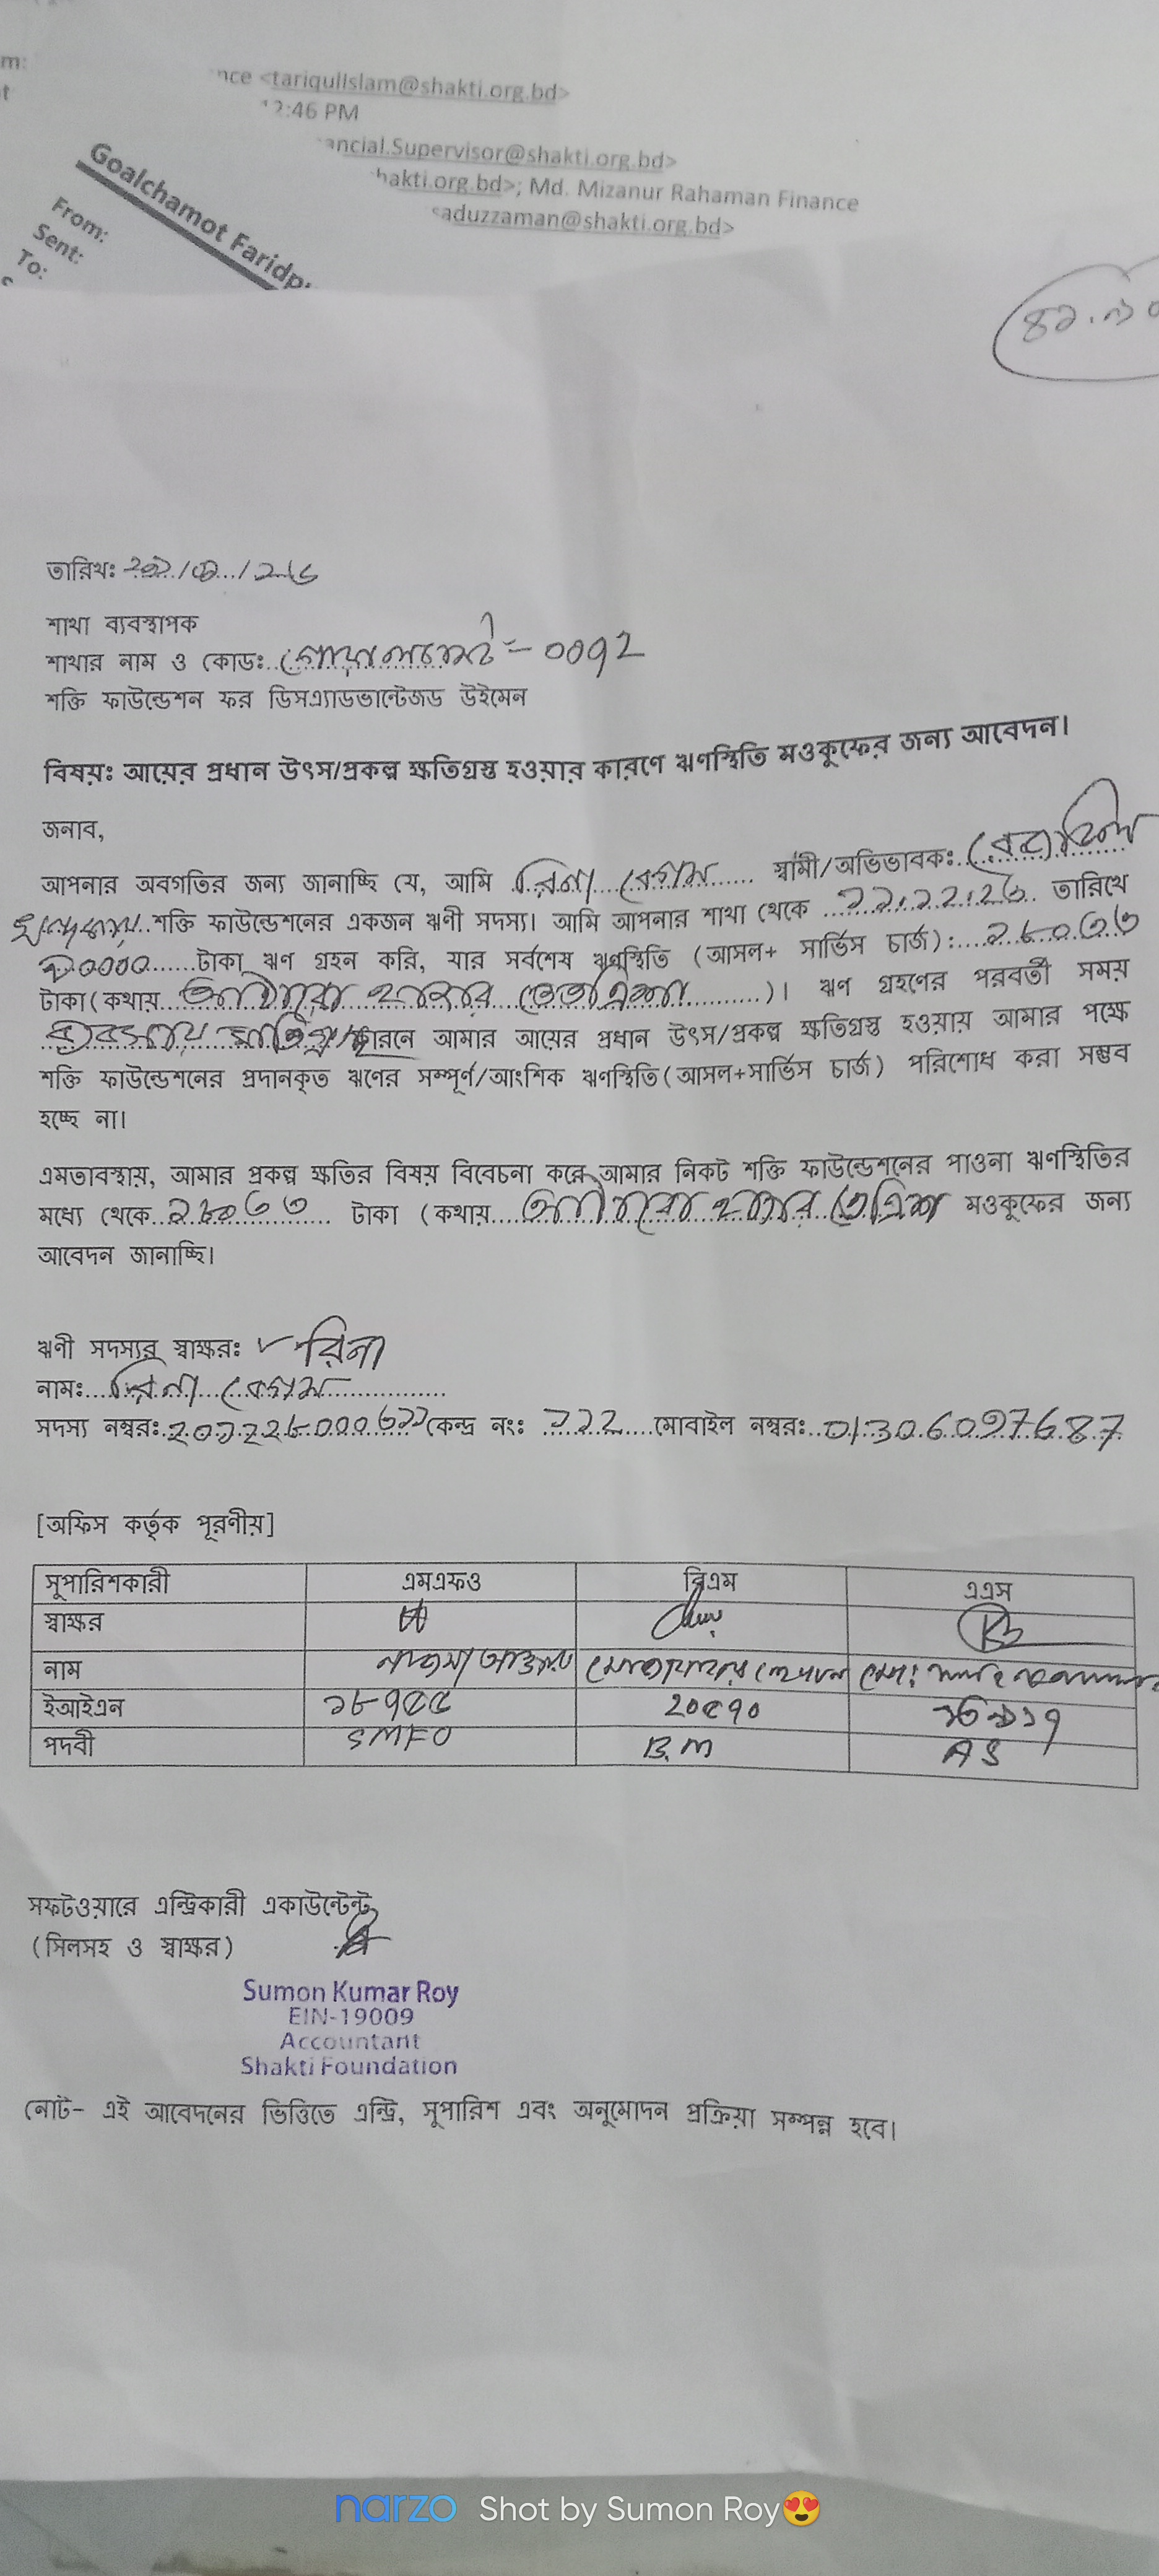 m:
nce <tariqulislam@shakti.org.bd>
12:46 PM
ancial.Supervisor@shakti.org.bd>
hakti.org.bd>; Md. Mizanur Rahaman Finance
saduzzaman@shakti.org.bd>
Goalchamot Faridp
From:
Sent:
To:
তারিখঃ
শাখা ব্যবস্থাপক
শাখার নাম ও কোডঃ গোয়ালচামট = ০০৭২
শক্তি ফাউন্ডেশন ফর ডিসএ্যাডভান্টেজড উইমেন
বিষয়ঃ আয়ের প্রধান উৎস/প্রকল্প ক্ষতিগ্রস্ত হওয়ার কারণে ঋণস্থিতি মওকুফের জন্য আবেদন।
জনাব,
আপনার অবগতির জন্য জানাচ্ছি যে, আমি রিনা বেগম স্বামী/অভিভাবকঃ
শক্তি ফাউন্ডেশনের একজন ঋণী সদস্য। আমি আপনার শাখা থেকে তারিখে
টাকা ঋণ গ্রহন করি, যার সর্বশেষ ঋণস্থিতি (আসল+ সার্ভিস চার্জ):
টাকা(কথায় হাজার )। ঋণ গ্রহণের পরবর্তী সময়
কারনে আমার আয়ের প্রধান উৎস/প্রকল্প ক্ষতিগ্রস্ত হওয়ায় আমার পক্ষে
শক্তি ফাউন্ডেশনের প্রদানকৃত ঋণের সম্পূর্ণ/আংশিক ঋণস্থিতি(আসল+সার্ভিস চার্জ) পরিশোধ করা সম্ভব
হচ্ছে না।
এমতাবস্থায়, আমার প্রকল্প ক্ষতির বিষয় বিবেচনা করে আমার নিকট শক্তি ফাউন্ডেশনের পাওনা ঋণস্থিতির
মধ্যে থেকে টাকা (কথায় হাজার মওকুফের জন্য
আবেদন জানাচ্ছি।
ঋণী সদস্যর স্বাক্ষরঃ রিনা
নামঃ রিনা বেগম
সদস্য নম্বরঃ কেন্দ্র নংঃ মোবাইল নম্বরঃ 01306097687
[অফিস কর্তৃক পূরণীয়]
সুপারিশকারী এমএফও বিএম এএস
স্বাক্ষর
নাম
ইআইএন ১৮৭৫৫ ২০৫৭০
পদবী SMFO B.M AS
সফটওয়ারে এন্ট্রিকারী একাউন্টেন্ট
(সিলসহ ও স্বাক্ষর)
Sumon Kumar Roy
EIN-19009
Accountant
Shakti Foundation
নোট- এই আবেদনের ভিত্তিতে এন্ট্রি, সুপারিশ এবং অনুমোদন প্রক্রিয়া সম্পন্ন হবে।
narzo Shot by Sumon Roy😍